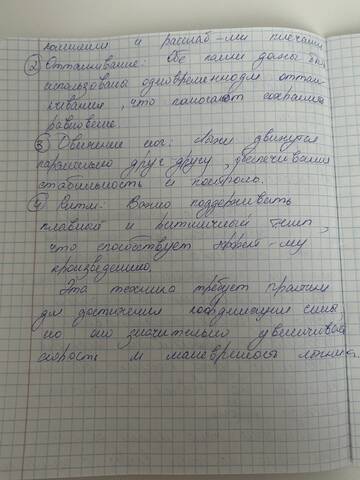 и расслаб-ми плечами
② Отталкивание: Обе палки долж быть
использованы одновременно для оттал
кивания, что помогает сохранить
равновесие.
③ Движение ног: Лыжи двинутся
параллельно друг другу,
стабильность и контроль.
④ Ритм: Важно поддерживать
плавный и ритмичный темп,
что способствует эффект-му
произведению.
Эта техника требует практики
для достижения координации силы,
но она значительно увеличивает
скорость и маневренность лыжника.